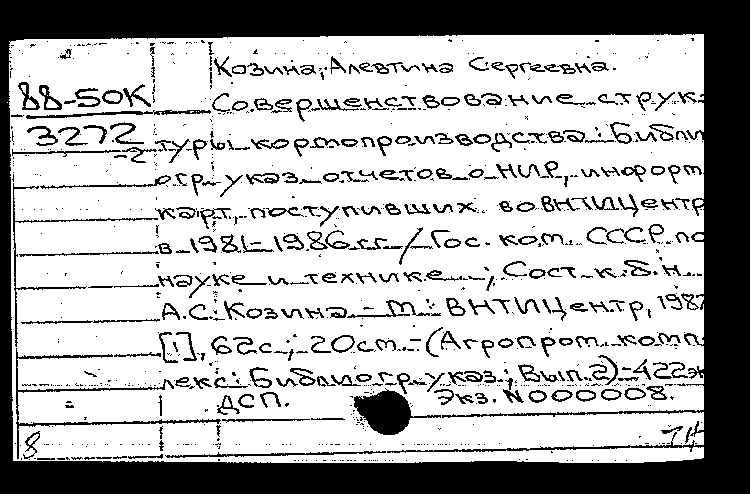 Козина, Алевтина Сергеевна.
88-50К
Совершенствование струк-
3272
-2
туры кормопроизводства: Библи
огр. указ. отчетов о НИР, информ
карт, поступивших во ВНТИЦентр
в 1981-1986 гг. / Гос. ком. СССР по
науке и технике...; Сост. к.б.н.
А.С. Козина. - М.: ВНТИЦентр, 1987
[1], 62с.; 20см. - (Агропром. комп-
лекс: Библиогр. указ.; Вып. 2) - 422эк
ДСП. Экз. N000008.
8